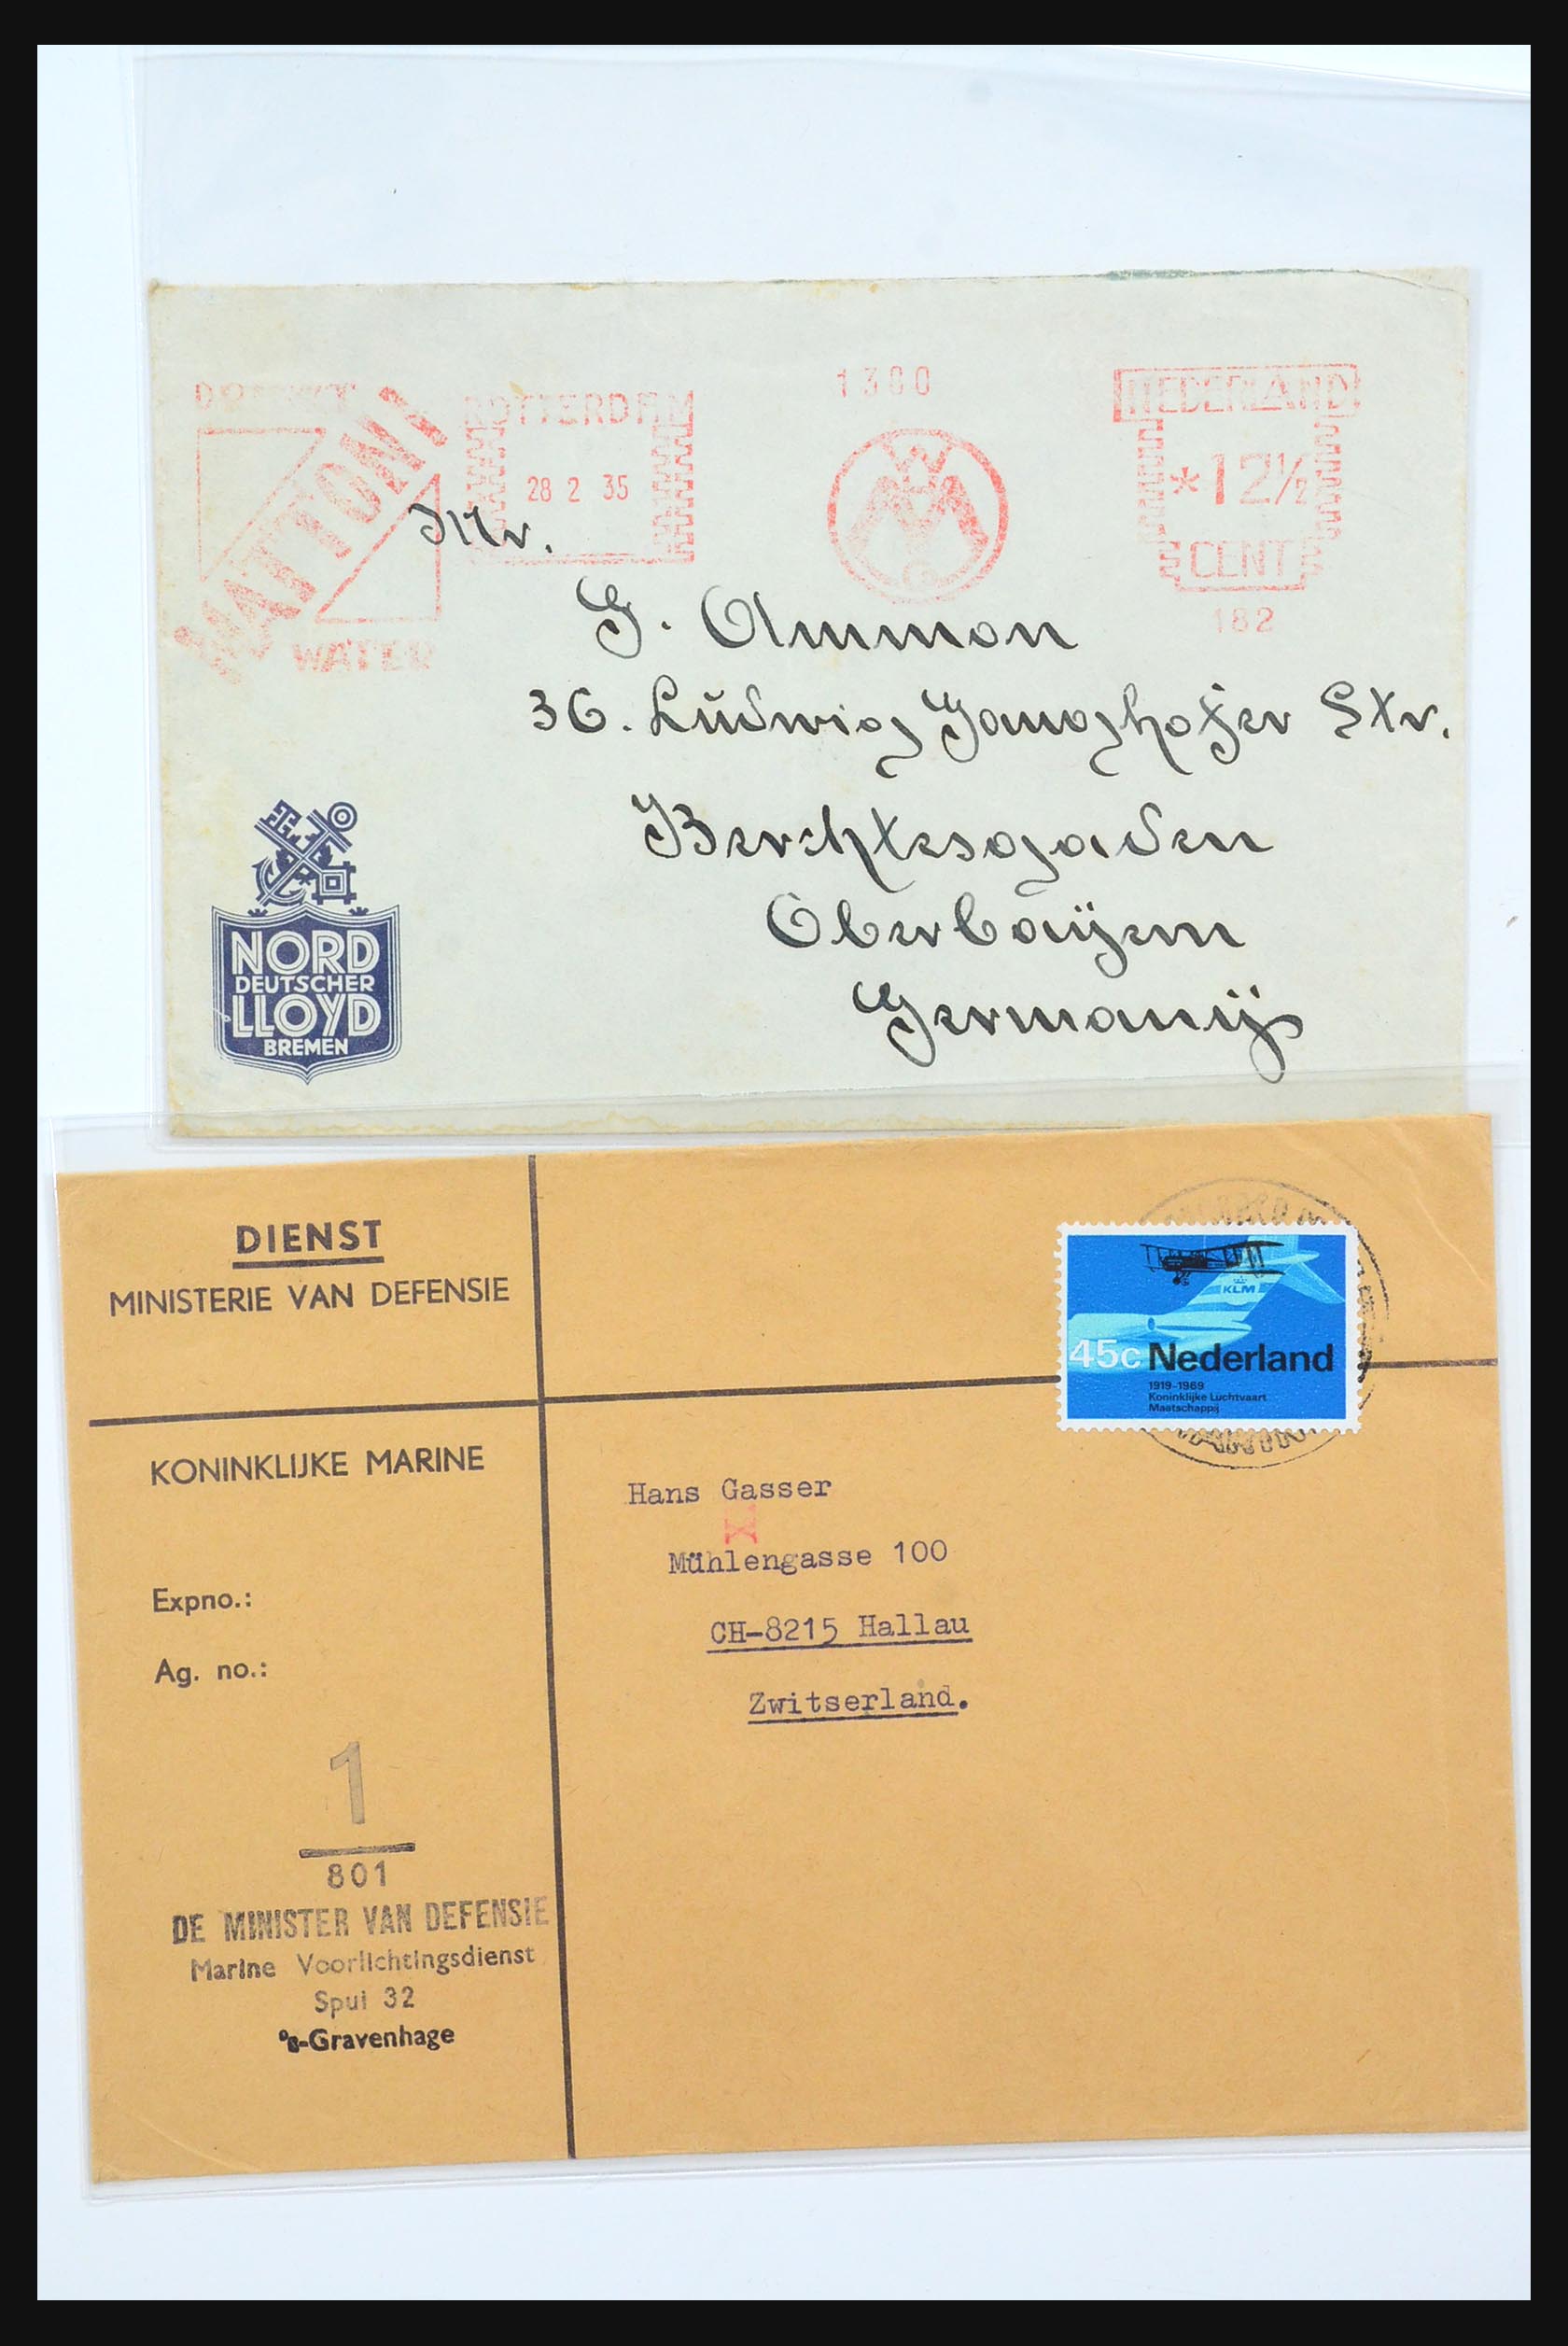 DRINKT
MATTONI
WATER
ROTTERDAM
28 2 35
1300
NEDERLAND
*12½
CENT
182
Mr.
G. Ammon
36. Ludwig Ganghofer Str.
Berchtesgaden
Oberbayern
Germany
NORD
DEUTSCHER
LLOYD
BREMEN
DIENST
MINISTERIE VAN DEFENSIE
KLM
45c Nederland
1919-1969
Koninklijke Luchtvaart
Maatschappij
KONINKLIJKE MARINE
Expno.:
Ag. no.:
1
801
DE MINISTER VAN DEFENSIE
Marine Voorlichtingsdienst
Spui 32
's-Gravenhage
Hans Gasser
Mühlengasse 100
CH-8215 Hallau
Zwitserland.